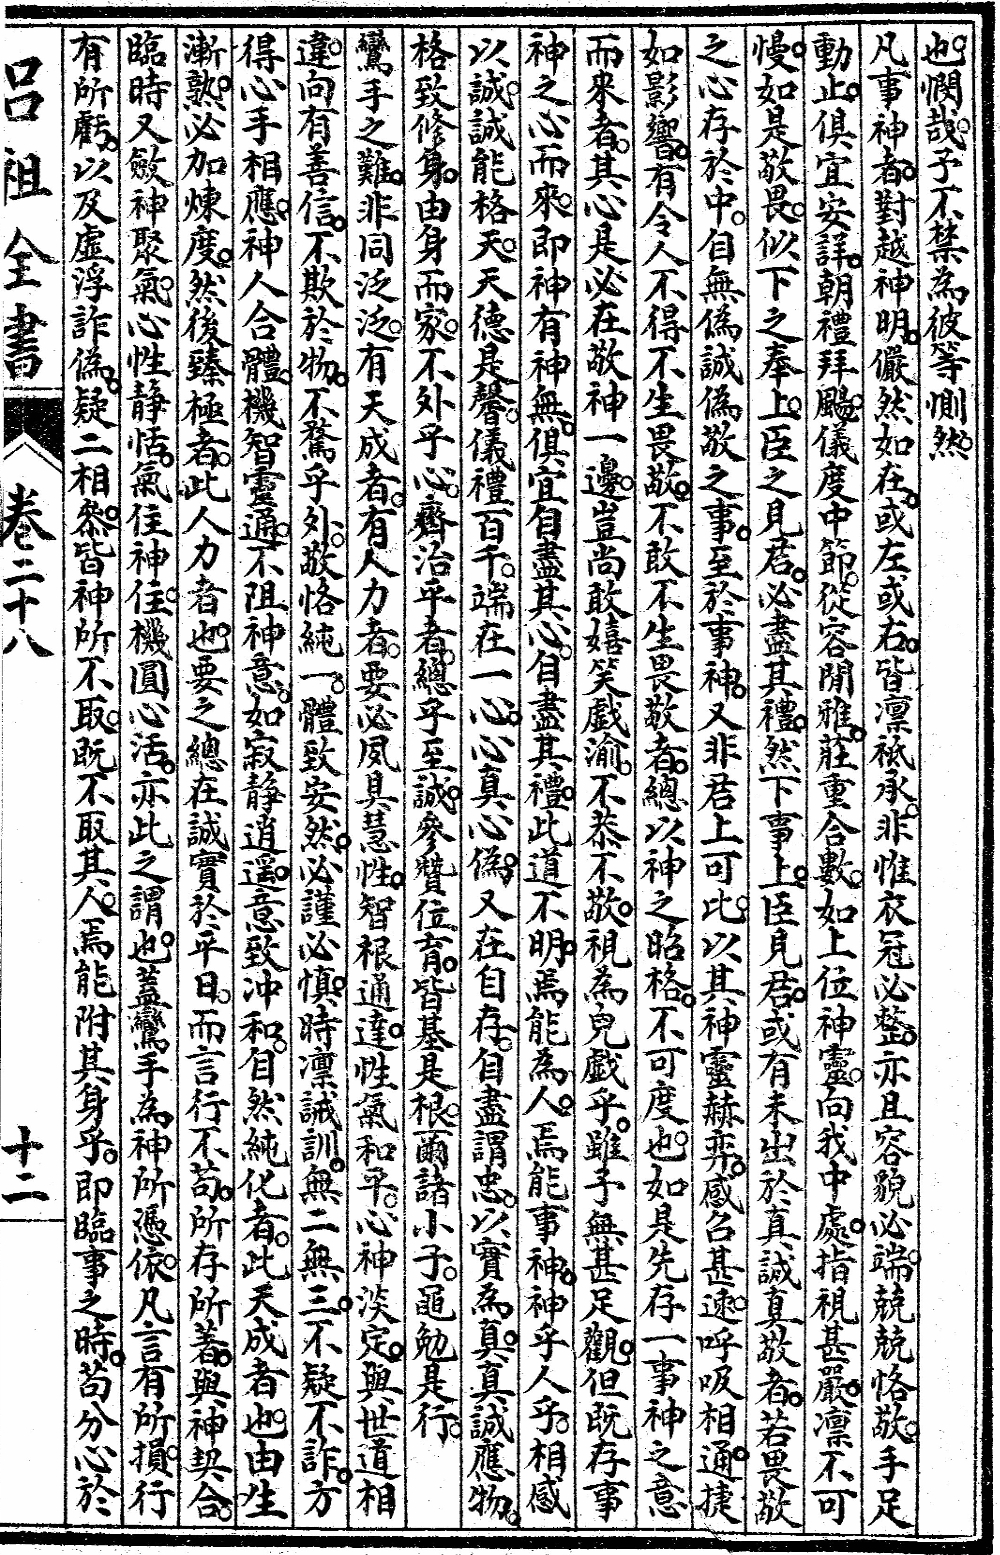 也憫哉予不禁為彼等惻然
凡事神者對越神明儼然如在或左或右皆凛祗承非惟衣冠必整亦且容貌必端兢兢恪敬手足
動止俱宜安詳朝禮拜颺儀度中節從容閒雅莊重合數如上位神靈向我中處指視甚嚴凛不可
慢如是敬畏似下之奉上臣之見君必盡其禮然下事上臣見君或有未出於真誠真敬者若畏敬
之心存於中自無偽誠偽敬之事至於事神又非君上可比以其神靈赫弈感召甚速呼吸相通捷
如影響有令人不得不生畏敬不敢不生畏敬者總以神之昭格不可度也如是先存一事神之意
而來者其心是必在敬神一邊豈尚敢嬉笑戲渝不恭不敬視為兒戲乎雖予無甚足觀但既存事
神之心而來即神有神無俱宜自盡其心自盡其禮此道不明焉能為人焉能事神神乎人乎相感
以誠誠能格天天德是馨儀禮百千端在一心心真心偽又在自存自盡謂忠以實為真真誠應物
格致修身由身而家不外乎心齊治平者總乎至誠參贊位育皆基是根爾諸小子黽勉是行
鸞手之難非同泛泛有天成者有人力者要必夙具慧性智根通達性氣和平心神淡定與世道相
違向有善信不欺於物不騖乎外敬恪純一體致安然必謹必慎時凛誡訓無二無三不疑不詐方
得心手相應神人合體機智靈通不阻神意如寂静逍遥意致冲和自然純化者此天成者也由生
漸熟必加煉度然後臻極者此人力者也要之總在誠實於平日而言行不苟所存所著與神契合
臨時又斂神聚氣心性静恬氣住神住機圓心活亦此之謂也蓋鸞手為神所憑依凡言有所損行
有所虧以及虛浮詐偽疑二相參皆神所不取既不取其人焉能附其身乎即臨事之時苟分心於
呂祖全書 卷二十八 十二